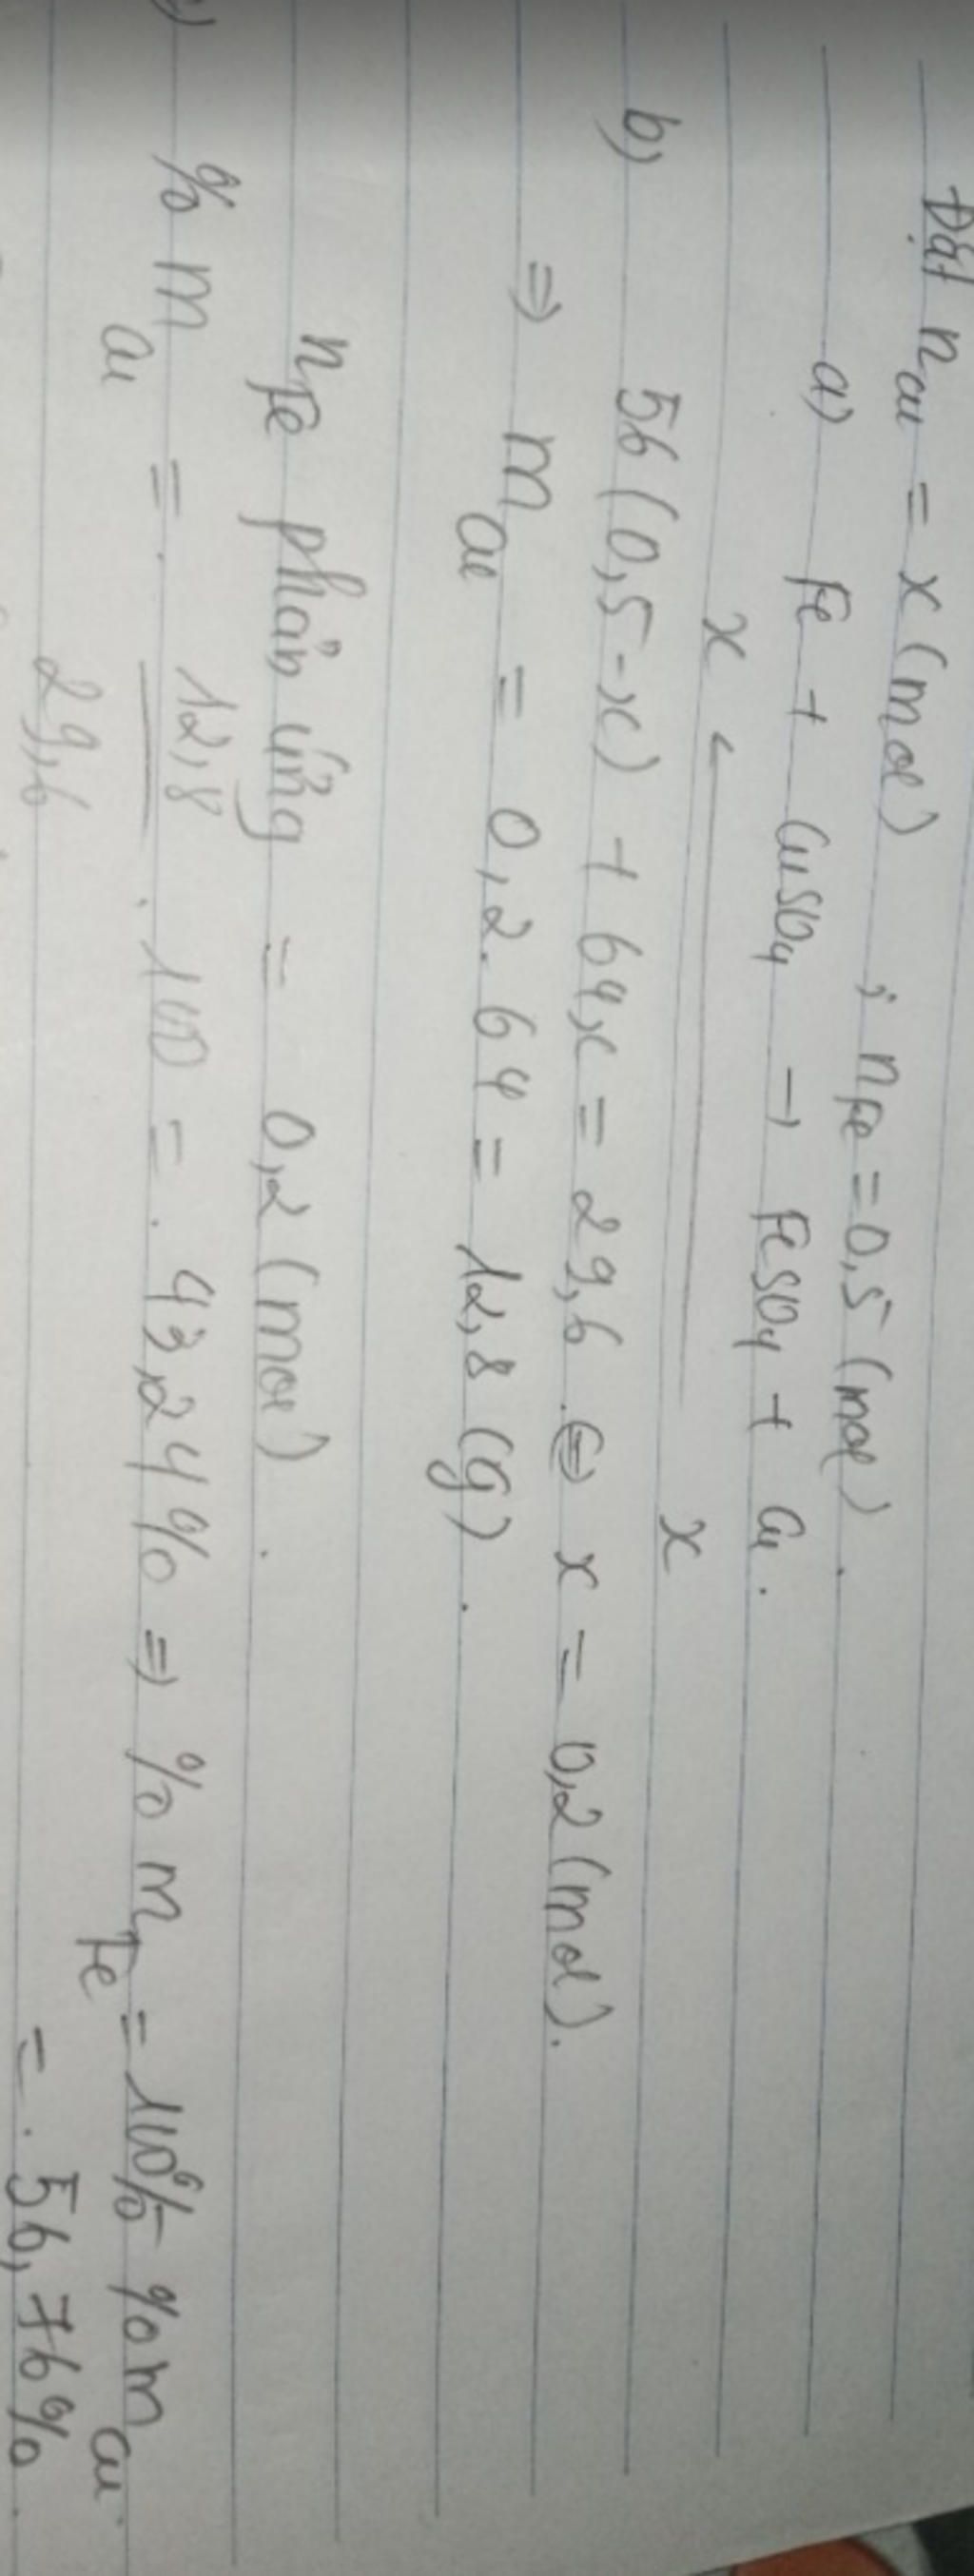 Đặt nCu = x (mol) ; nFe = 0,5 (mol).
a) Fe + CuSO4 → FeSO4 + Cu.
x ← x
b) 56(0,5-x) + 64x = 29,6 ⇔ x = 0,2 (mol).
⇒ mCu = 0,2. 64 = 12,8 (g).
nFe phản ứng = 0,2 (mol).
c) % mCu = 12,8 / 29,6 . 100 = 43,24% ⇒ % mFe = 100% - %mCu.
= 56,76%.